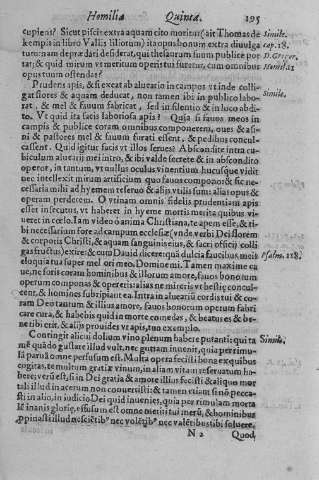 Homilia Quinta. 195
cupiens? Sicut piscis extra aquam cito moritur (ait Thomas de
kempis in libro Vallis liliorum) ita opus bonum extra divulga
tum nam deprædari desiderat, qui thesaurum suum publice por
tat; & quid mirum si metitur operis sui futurũ, cum omnibus
opus tuum ostendas?
Prudens apis, & si exeat ab alueario in campos vt inde colli-
gat flores & aquam deducat, non tamen ibi in publico labo-
rat, & mel & fauum fabricat, sed in silentio & in loco abdi-
to. Vt quid ita facis laboriosa apis? Quia si fauos meos in
campis & publice coram omnibus componerem, oues & asi-
ni & pastores mel & fauum furati essent, & pedibus concul-
cassent. Quid igitur facis vt illos serues? Abscondite intra cu-
biculum aluearij mei intro, & ibi valde secrete & in abscondito
operor, in tantum, vt nullus oculus viuentium hucusque vidit
nec intellexit mirum artificium quo fauos compono & sic ne-
cessaria mihi ad hyemem reseruo & alijs vtilis sum: alias opus &
operam perderem. O vtinam omnis fidelis prudentiam apis
esset insecutus, vt haberet in hyeme mortis merita quibus vi-
ueret in cœlo. Iam video ò anima Christiana, te apem esse, & ti-
bi necessarium fore ad campum ecclesiæ (vnde verbi Dei florem
& corporis Christi, & aquam sanguinis eius, & sacri officij) colli
gas fructus) exire: & cum Dauid dicere: quã dulcia faucibus meis
eloquia tua super mel ori meo. Domine mi. Tamen maxime ca
ue, ne foris coram hominibus & illorum amore, fauos bonorum
operum componas & opereris: alias ne mireris vt bestiæ concul-
cent, & homines fabripiant ea. Intra in aluearium cordis tui & co-
ram Deo tantum & illius amore, fauos bonorum operum fabri
care cura, & habebis quid in morte comedas, & beatus es & be-
ne tibi erit, & alijs prouides vt apis, tuo exemplo.
Contingit alicui dolium vino plenum habere putanti: qui ta
mẽ quãdo gustare illud vult, nec guttam inuenit, quia per rimu-
lã paruã omne perfusum est. Multa opera fecisti bona ex quibus
cogitas, te multum gratiæ vinum, in aliam vitam reseruatum ha-
bere; verũ est, si in Dei gratia & amore illius fecisti & aliquo mor
tali illud in acerum non conuertisti: & tamen etiam sine pecca-
sti in alio, in iudicio Dei quid inuenies, quia per rimulam morta
lẽ inanis gloriæ, effusum est omne meriti tui merũ, & hominibus
N 2 Quod,
Simile.
cap. 18.
D. Gregor.
Homil. 11
Simile.
Psalm. 118.
Simile.